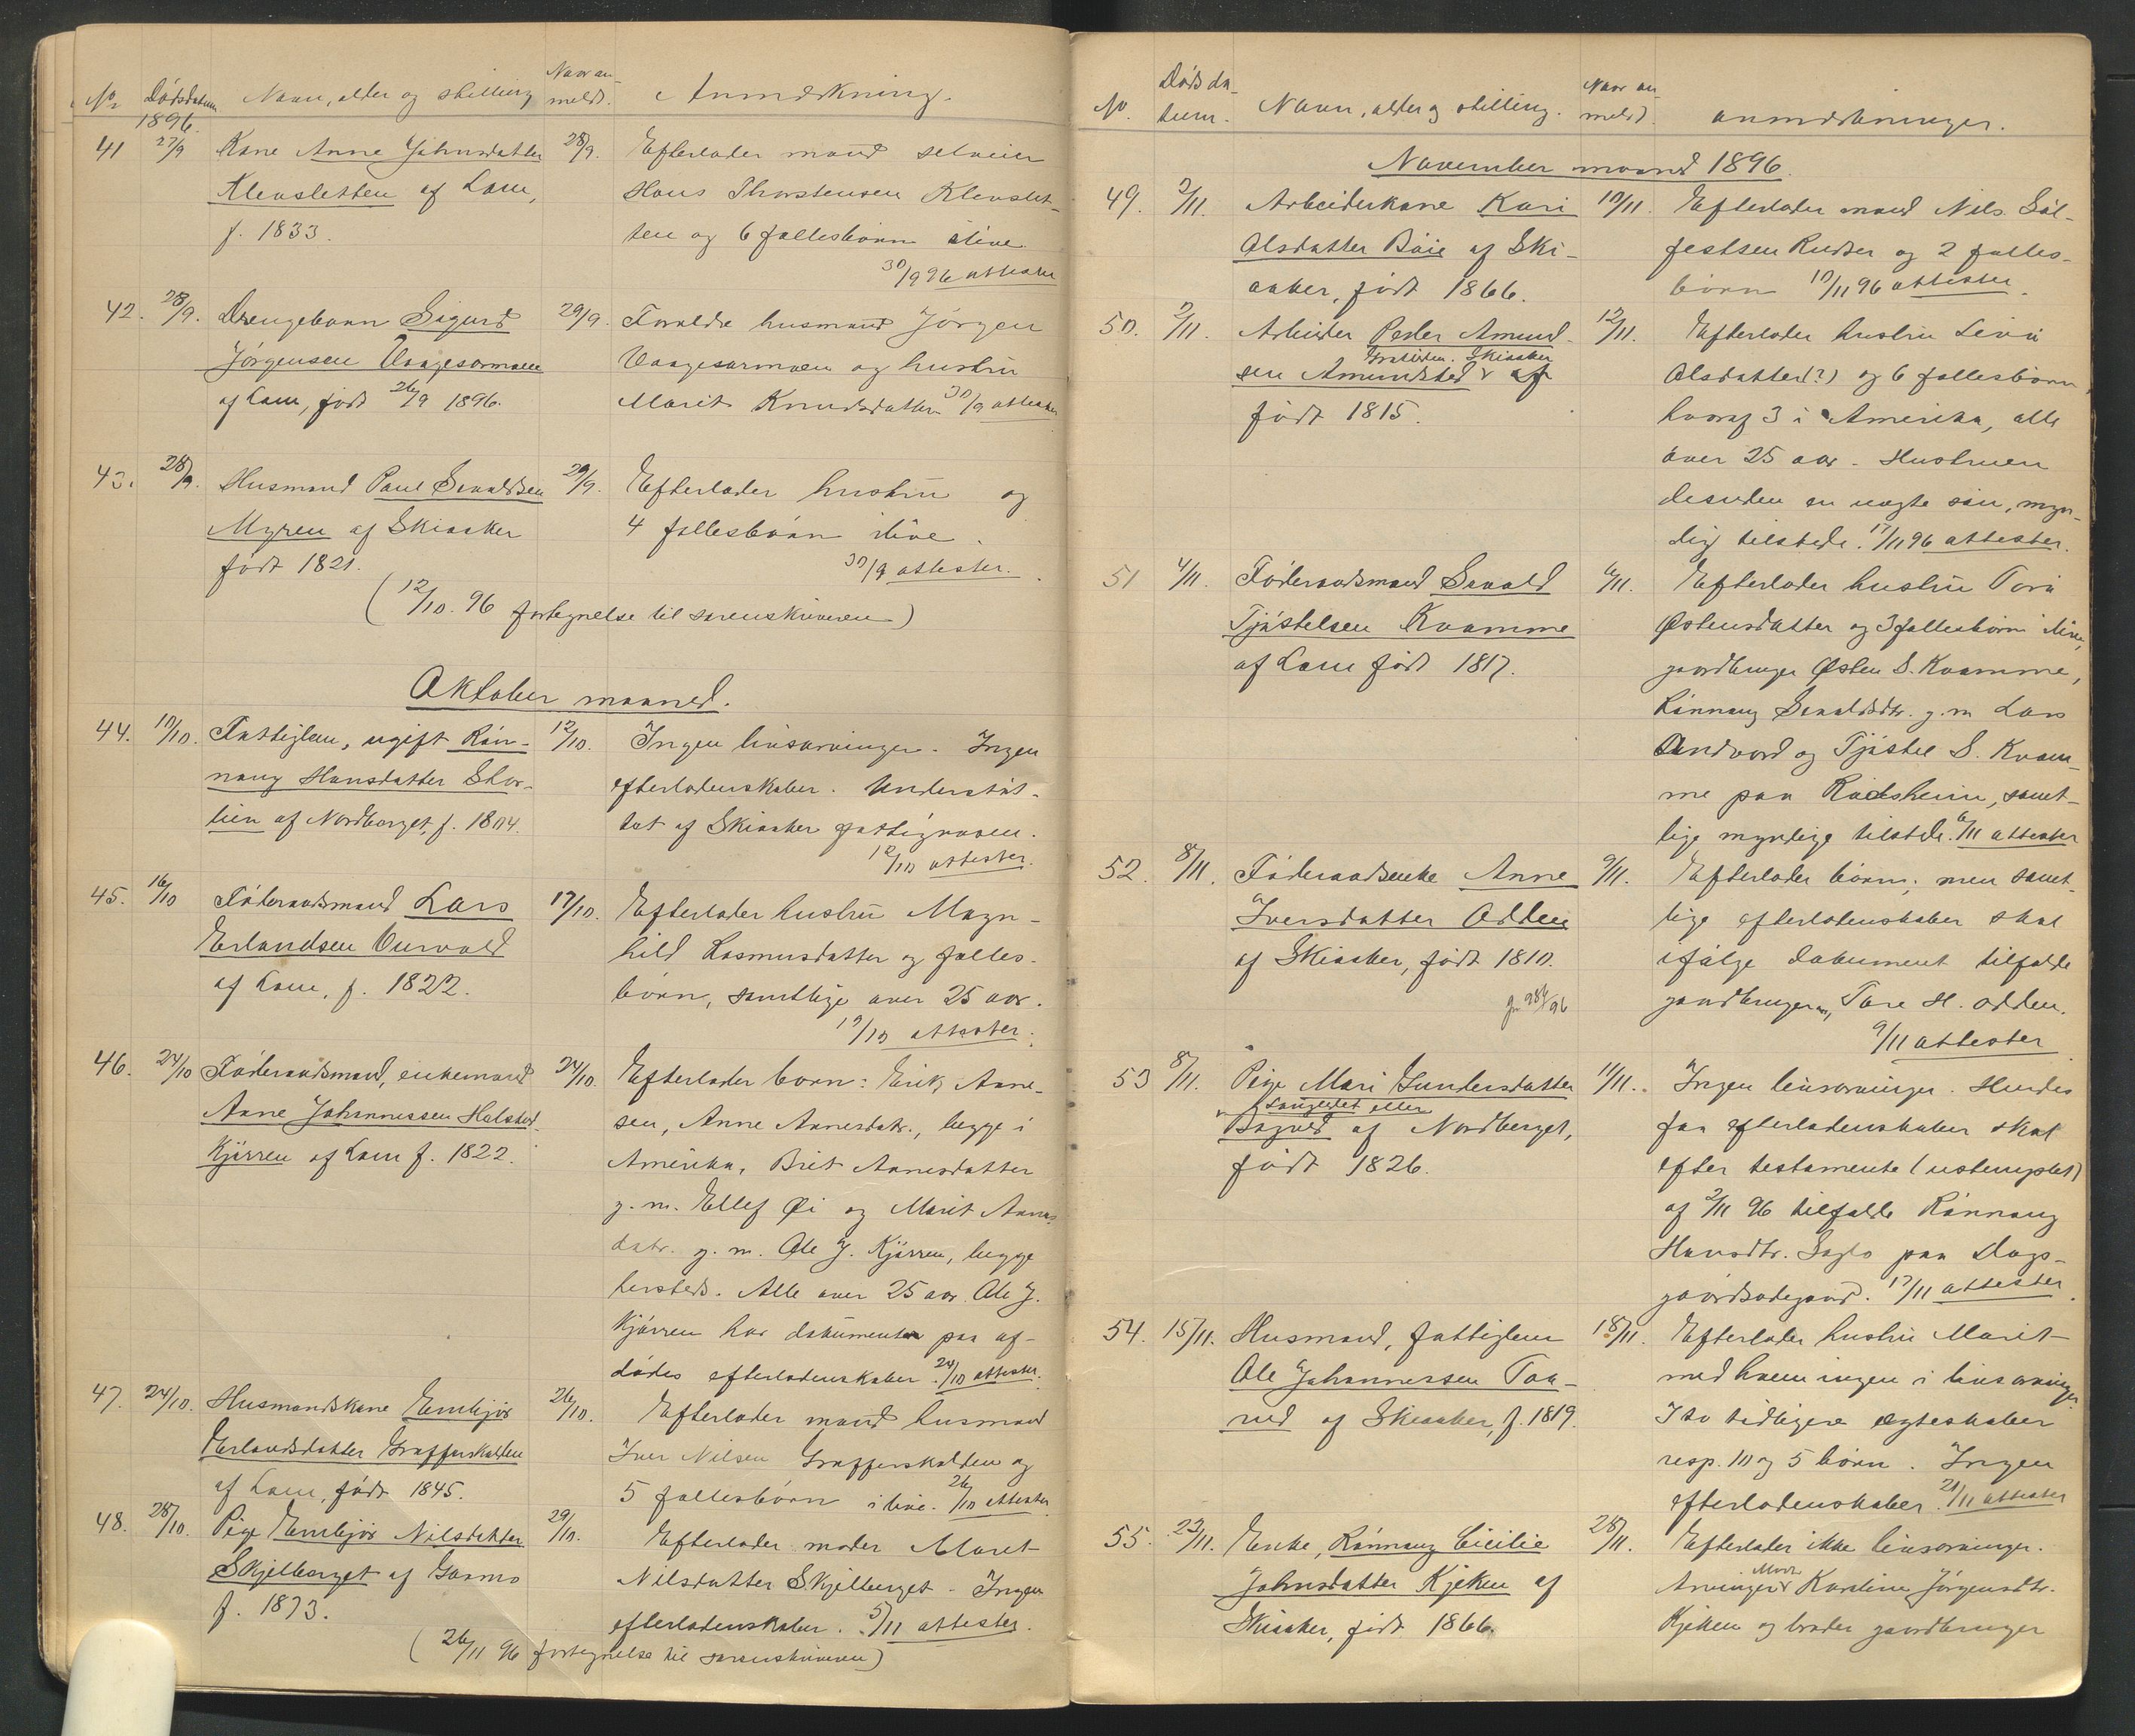 No Dødsdatum Navn, alder og stilling Naar anmeldt. Anmærkning.
1896.
41 27/9 Kone Anne Johnsdatter 28/9. Efterlader mand selveier
Klevsletten af Lom, Hans Thorstensen Klevslet-
f. 1833. ten og 6 fællesbørn ilive
30/9 96 attester
42. 28/9. Drengebarn Sigurd 29/9. Forældre husmand Jørgen
Jørgensen Vaagesarmoen Vaagesarmoen og hustru
af Lom, født 26/9 1896. Marit Knudsdatter 30/9 attester
43. 28/9. Husmand Paul Sevaldsen 29/9. Efterlader hustru og
Myren af Skiaaker 4 fællesbørn ilive.
født 1821. 30/9 attester.
(12/10. 96 fortegnelse til sorenskriveren)
Oktober maaned.
44. 10/10. Fattiglem, ugift Røn- 12/10. Ingen livsarvinger. Ingen
naug Hansdatter Stor- efterladenskaber. Understøt-
lien af Nordberget, f. 1804. tet af Skiaaker fattigvæsen.
12/10 attester.
45. 16/10 Føderaadsmand Lars 17/10. Efterlader hustru Magn-
Erlandsen Vurvold hild Rasmusdatter og fælles-
af Lom, f. 1822. børn, samtlige over 25 aar.
19/10 attester.
46. 24/10 Føderaadsmand, enkemand 24/10. Efterlader børn: Erik Arne-
Arne Johannessen Halsted- sen, Anne Arnesdatr., begge i
Kjørren af Lom f. 1822. Amerika, Brit Arnesdatter
g. m. Ellef Øi og Marit Arnes-
datr. g. m. Ole J. Kjørren, begge
hersteds. Alle over 25 aar. Ole J.
Kjørren har dokumenter paa af-
dødes efterladenskaber. 24/10 attester.
47. 24/10. Husmandskone Embjør 26/10. Efterlader mand husmand
Erlandsdatter Graffarskolden Iver Nilsen Graffarskolden og
af Lom, født 1845. 5 fællesbørn i live. 26/10 attester
48. 28/10. Pige Embjør Nilsdatter 29/10. Efterlader moder Maret
Skjelberget af Garmo Nilsdatter Skjelberget. Ingen
f. 1873. efterladenskaber. 5/11 attester.
(26/11 96 fortegnelse til sorenskriveren)
No. Dødsdatum. Navn, alder og stilling. Naar anmeldt. anmærkninger.
November maaned 1896.
49. 2/11. Arbeiderkone Kari 10/11. Efterlader mand Nils Søl-
Olsdatter Bøie af Ski- festsen Rudser og 2 fælles-
aaker, født 1866. børn 10/11 96 attester.
50. 2/11. Arbeider Peder Amund- 12/11. Efterlader hustru Livi
sen Amundsted af Skiaaker Olsdatter(?) og 6 fællesbørn,
født 1815. hvoraf 3 i Amerika, alle
over 25 aar. Hustruen
desuden en uægte søn, myn-
dig tilstede. 17/11 96 attester.
51 4/11. Føderaadsmand Sevald 6/11. Efterlader hustru Tora
Tjøstelsen Kvamme Østensdatter og 3 fællesbørn ilive,
af Lom født 1817. gaardbruger Østen S. Kvamme,
Rønnaug Sevaldsdtr. g. m. Lars
Andvord og Tjøstel S. Kvam-
me paa Rødsheim, samt-
lige myndige tilstede. 6/11 attester
52. 8/11. Føderaadsenke Anne 9/11. Efterlader børn; men samt-
Iversdatter Odden lige efterladenskaber skal
af Skiaaker, født 1810. ifølge dokument tilfalde
gaardbrugeren Tore H. Odden.
9/11 attester
53 8/11. Pige Mari Gundersdatter 11/11. Ingen livsarvinger. Hendes
eller
af Nordberget, faa efterladenskaber skal
født 1826. efter testamente (ustemplet)
af 2/11 96 tilfalde Rønnaug
Hansdtr. Saglo paa Dags-
gaardsødegaard. 17/11 attester.
54. 15/11. Husmand, fattiglem 18/11. Efterlader hustru Marit
Ole Johannessen Taa- med hvem ingen i livsarvinger.
rud af Skiaaker, f. 1819. I to tidligere ægteskaber
resp. 10 og 5 børn. Ingen
efterladenskaber. 21/11 attester
55. 23/11. Enke, Rønnaug Cicilie 28/11. Efterlader ikke livsarvinger.
Johnsdatter Kjeken af Arvinger Moder Karoline Jørgensdtr.
Skiaaker, født 1866. Kjeken og broder gaardbruger